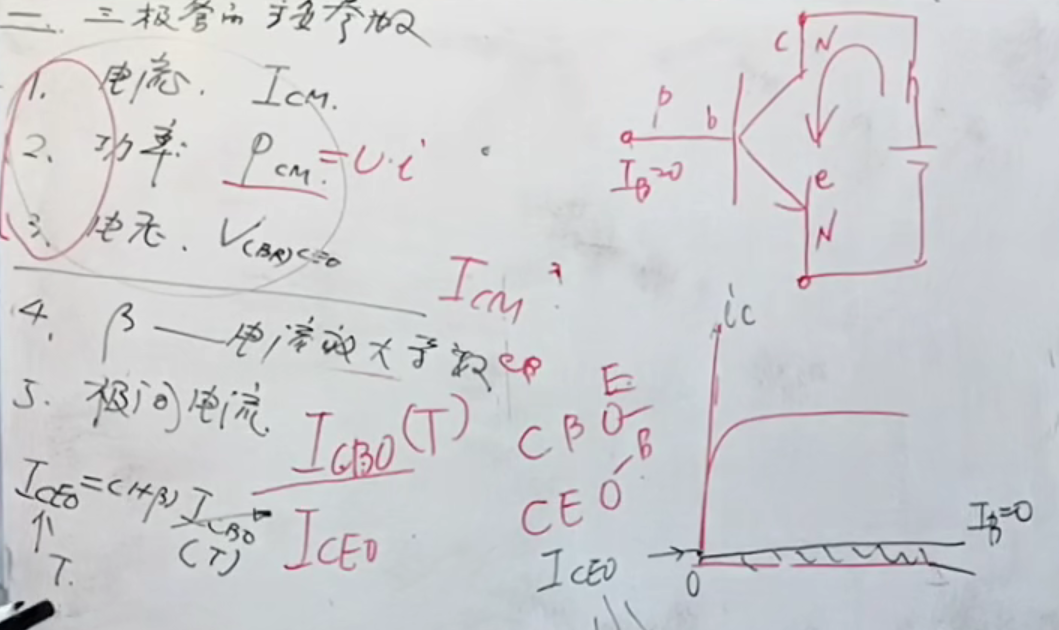 二. 三极管的主要参数
1. 电流. I_CM.
2. 功率: P_CM. = U·i
3. 电压. V_(BR)CEO
I_CM ?
4. β — 电流放大系数
5. 极间电流. I_CBO(T)
I_CEO=(1+β) I_CBO
(T)
↑
T.
I_CEO
E
C B O
B
C E O
c N
P b
I_B=0
e
N
i_C
I_B=0
I_CEO
0